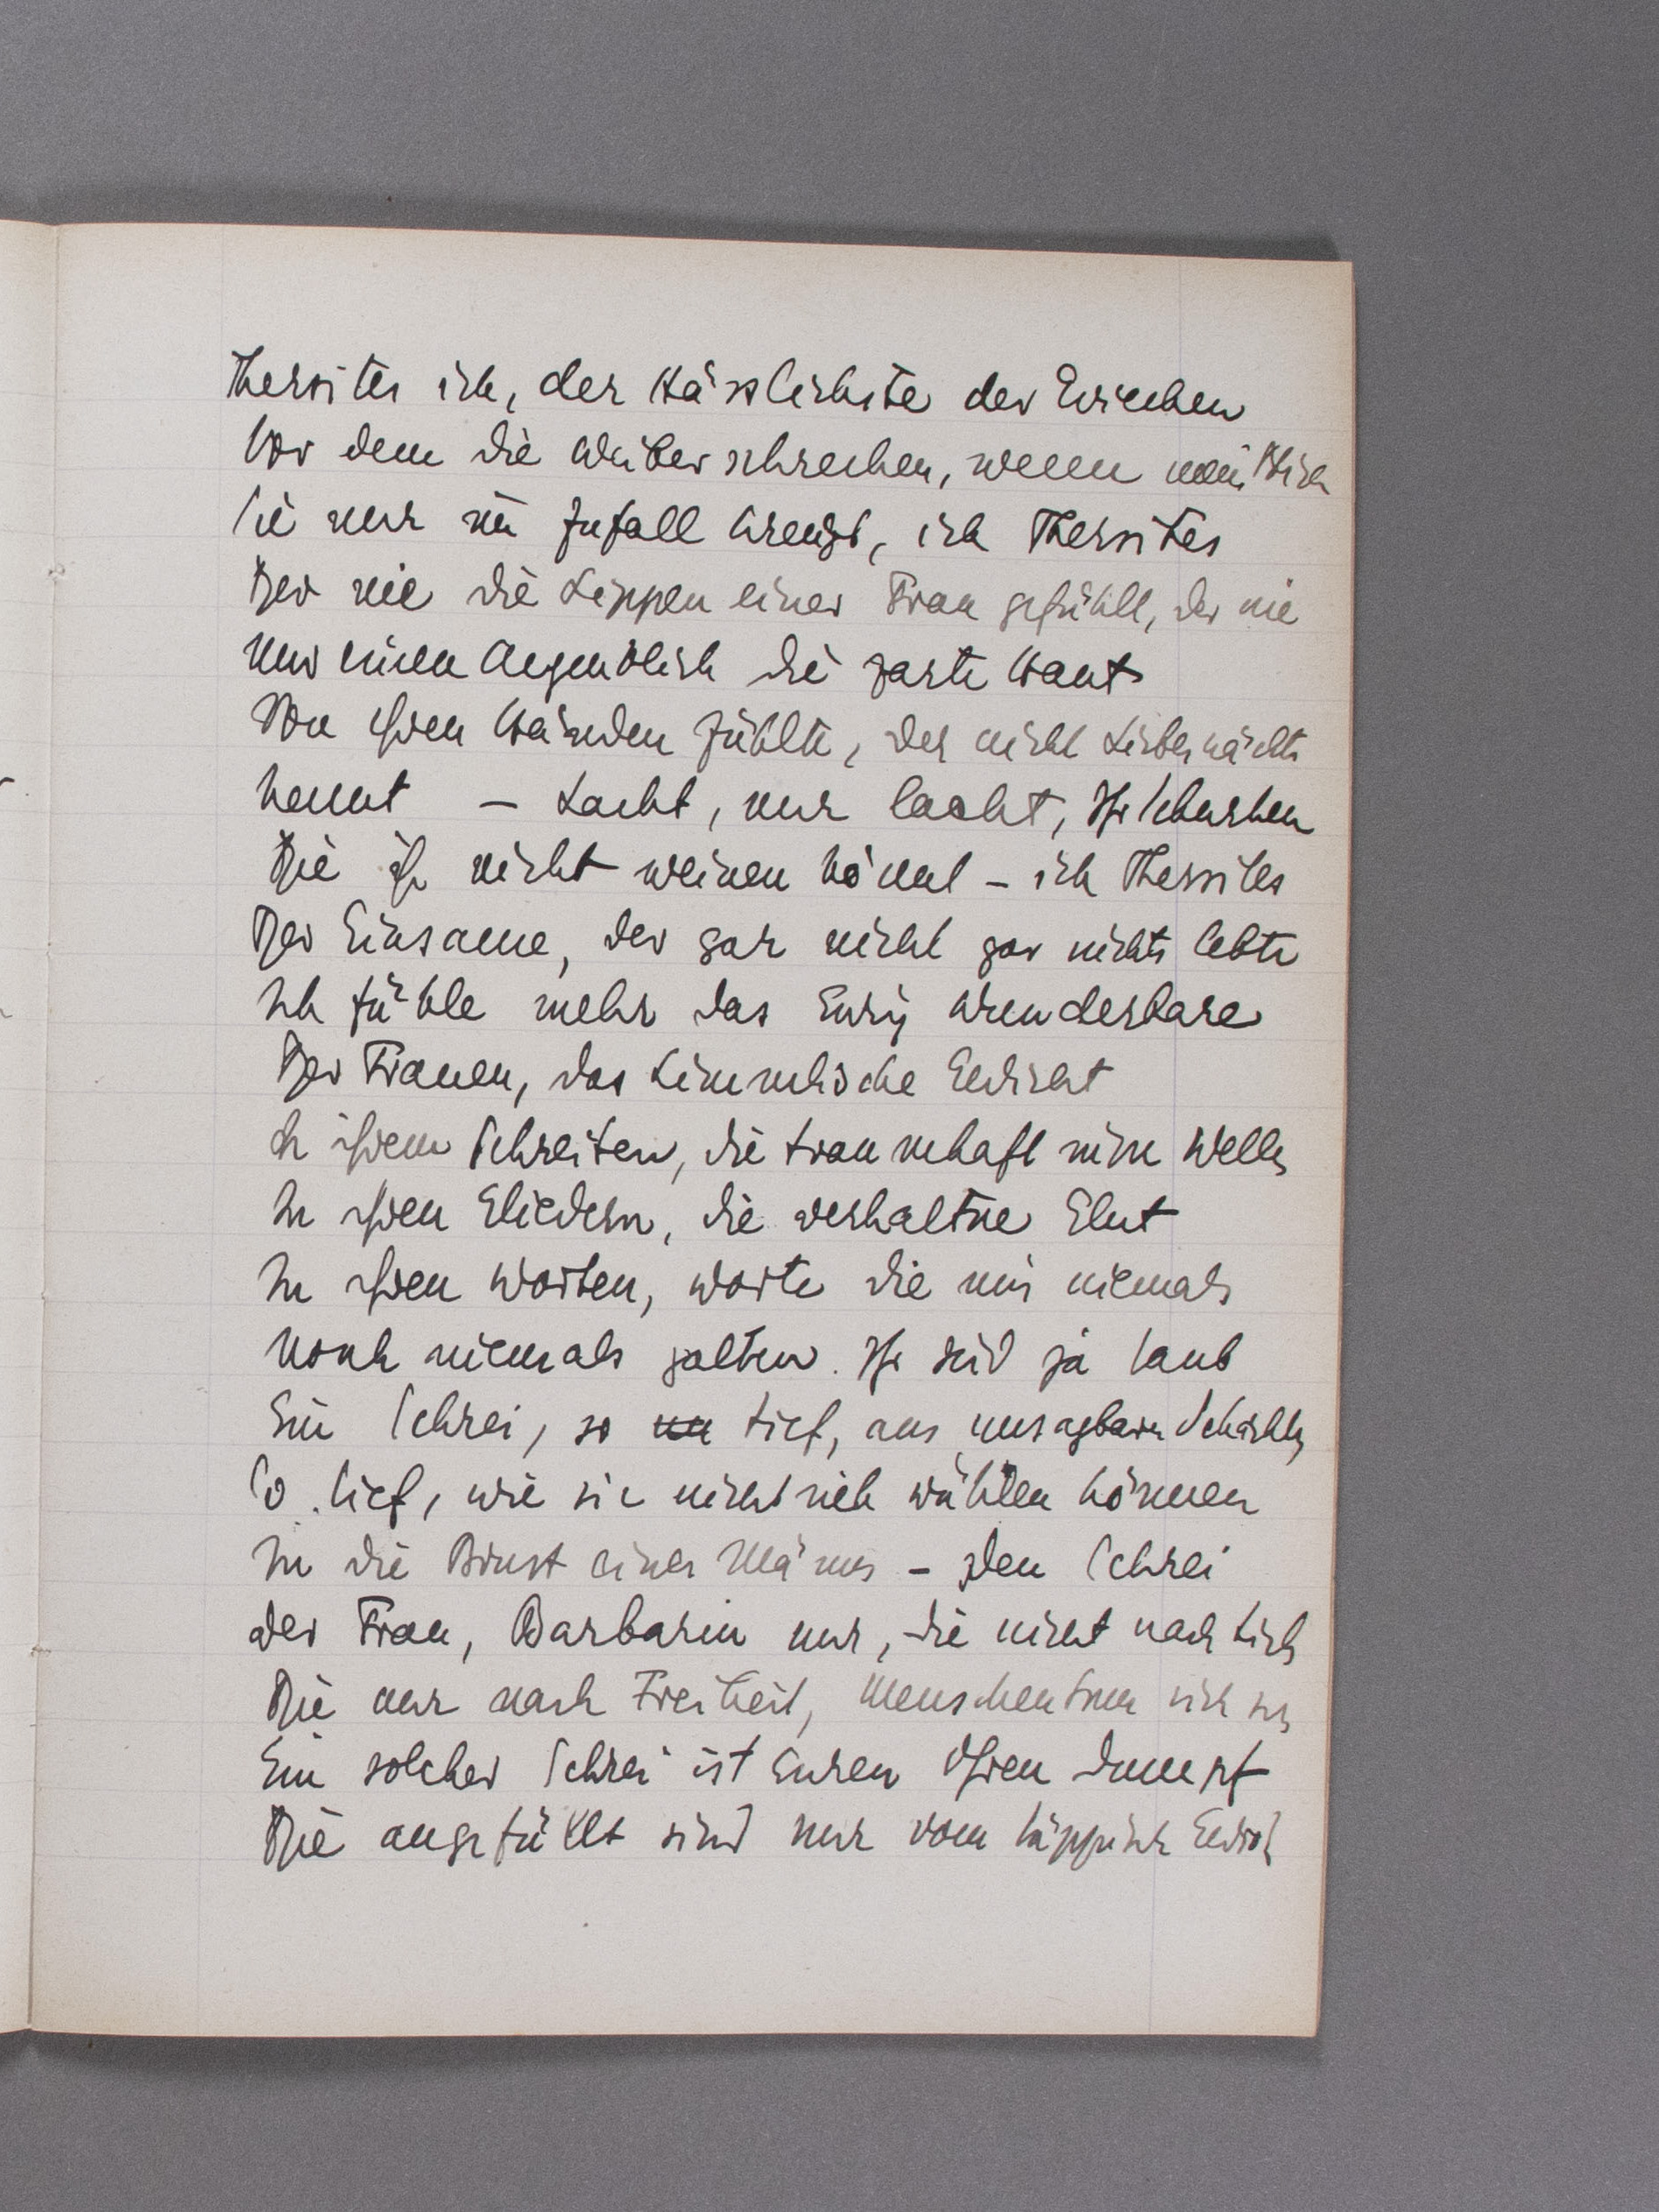 Thersites ich, der Hässlichste der Griechen
Vor dem die Weiber schrecken, wenn mein Blick
Sie nur im Zufall kreuzt, ich Thersites
Der nie die Lippen einer Frau gefühlt, der nie
Nur einen Augenblick die zarte Haut
Von ihren Händen fühlte, der nicht Liebesnächte
kennt – Lacht, nur lacht, Ihr Schurken
Die ihr nicht weinen könnt – ich Thersites
Der Einsame, der gar nicht gar nichts lebte
Ich fühle mehr das Ewig Wunderbare
Der Frauen, das himmlische Gedicht
In ihrem Schreiten, die traumhaft Wellen
In ihren Gliedern, die verhaltne Glut
In ihren Worten, Worte die mir niemals
Noch niemals galten. Ihr seid ja taub
Ein Schrei, so tief, aus unsagbaren Schächten
So tief, wie sie nicht sich wühlen können
In die Brust eines Manns – den Schrei
der Frau, Barbarin nur, die nicht nach Lieb
Die nur nach Freiheit, Menschentum sich
Ein solcher Schrei ist Euren Ohren dumpf
Die angefüllt sind nur vom läppisch